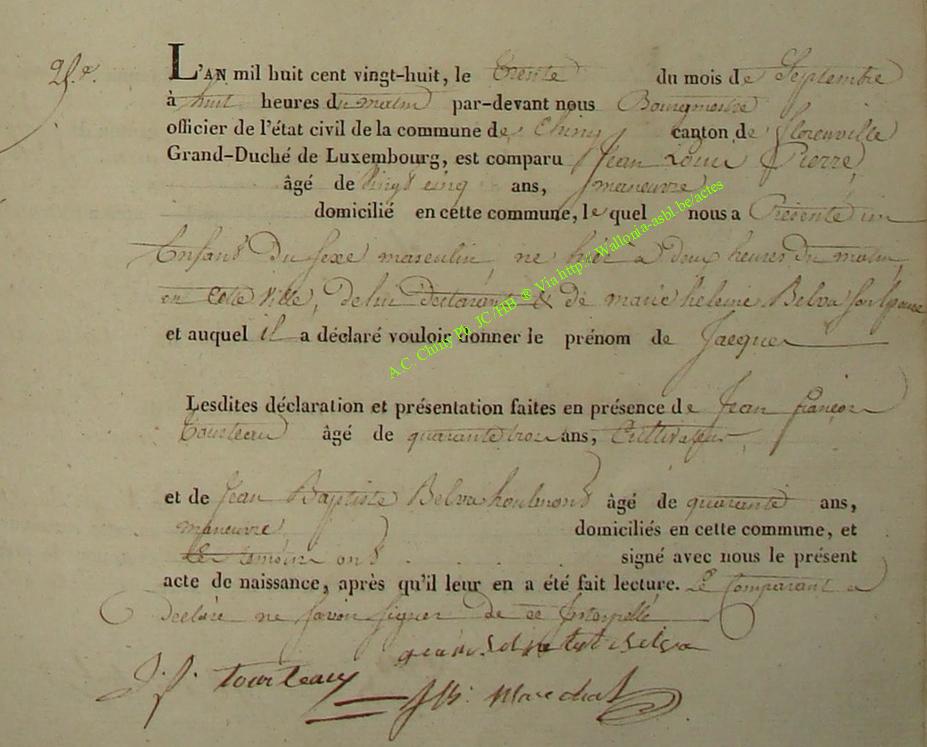 L'AN mil huit cent vingt-huit, le trente du mois de Septembre
à huit heures du matin par-devant nous Bourgmestre
officier de l'état civil de la commune de Chiny canton de florenville
Grand-Duché de Luxembourg, est comparu Jean Louis Pierre,
âgé de vingt cinq ans, maneuvre
domicilié en cette commune, le quel nous a Présenté un
Enfant Du sexe masculin, ne hier a deux heures du matin,
en cette ville, de lui Déclarant & de marie heleine Belva son Epouse
et auquel il a déclaré vouloir donner le prénom de Jacques
Lesdites déclaration et présentation faites en présence de Jean françois
Tourteau âgé de quarante trois ans, Cultivateur
et de Jean Baptiste Belva âgé de quarante ans,
maneuvre domiciliés en cette commune, et
les temoins ont signé avec nous le présent
acte de naissance, après qu'il leur en a été fait lecture. Le Comparant a
Declaré ne savoir signer de ce Interpellé
J. f. tourteaux J Bt. Marechal
A.C. Chiny Ph. JC/HB ® Via http://Wallonia-asbl.be/actes